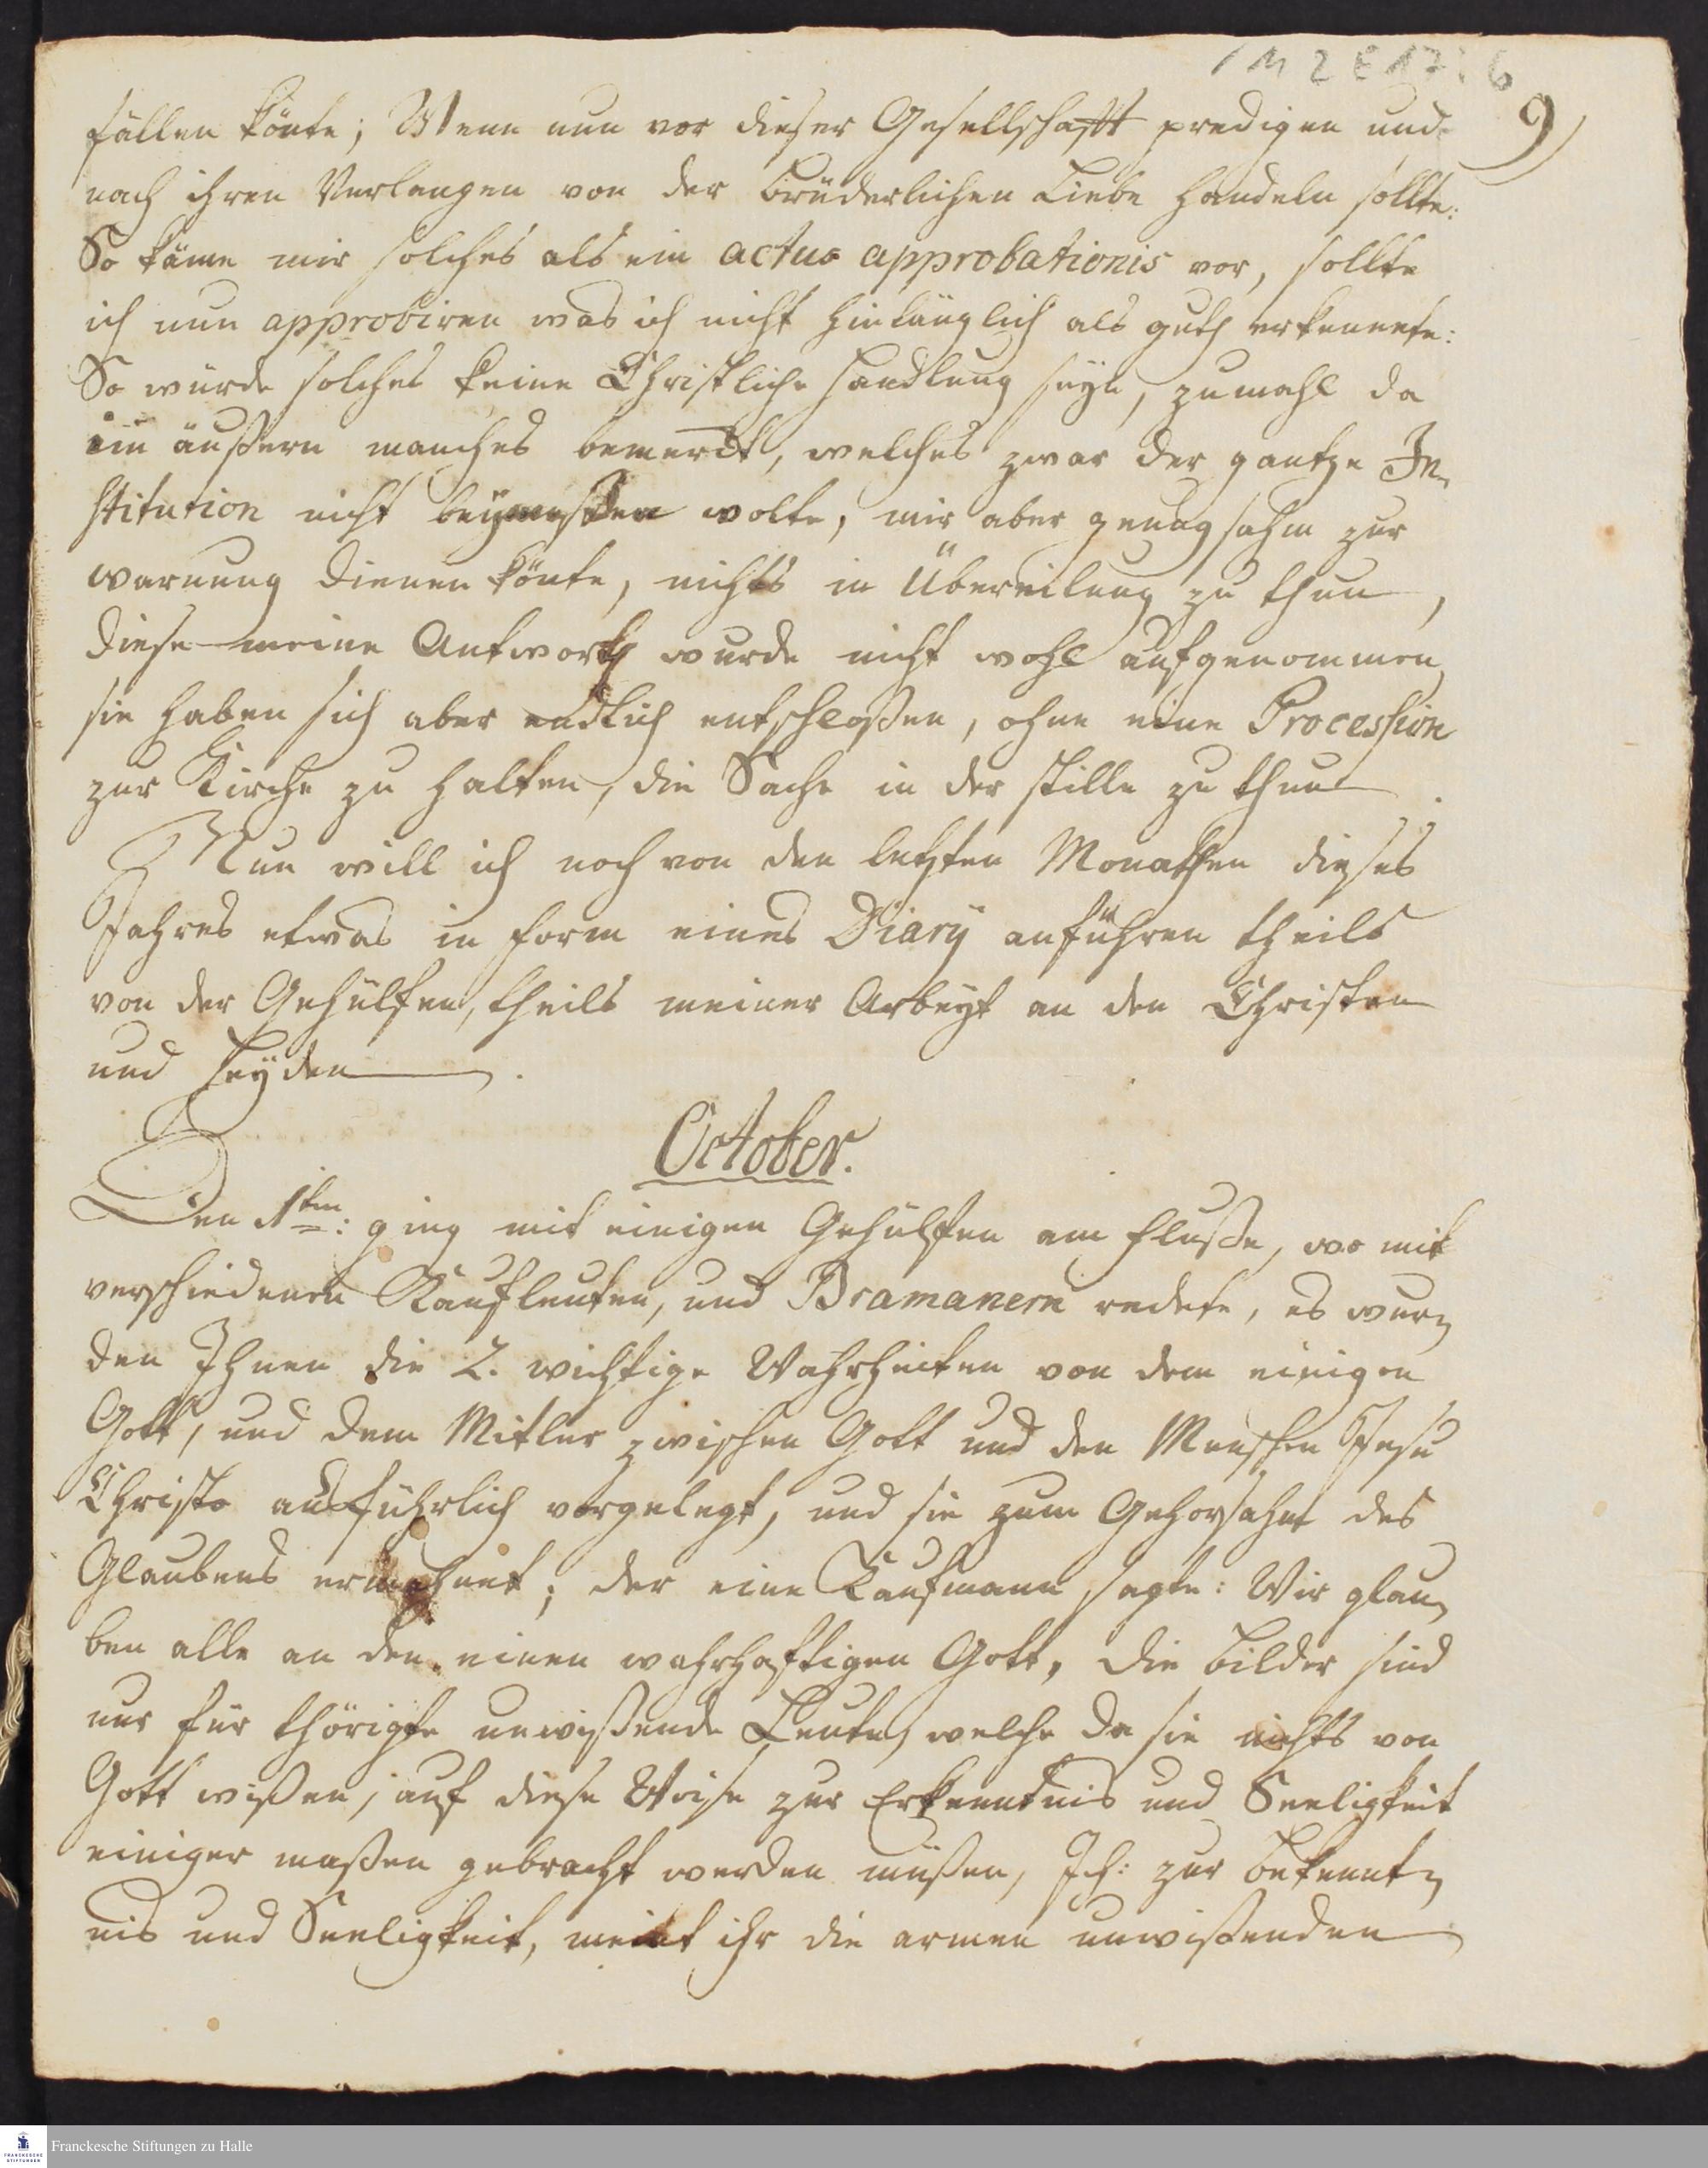 1 M 2 E 17 : 6
9)
fällen könte; Wenn nun vor dieser Gesellschafft predigen und
nach ihren Verlangen von der brüderlichen Liebe handeln sollte:
So käme mir solches als ein actus approbationis vor, sollte
ich nun approbiren was ich nicht hinlänglich als guth erkennete:
So würde solches keine Christliche Handlung seyn, zumahl da
im äußern manches bemerckt, welches zwar der gantze In-
stitution nicht beymeßen wolte, mir aber genugsahm zur
warnung dienen könte, nichts in Übereilung zu thun,
diese meine Antworth wurde nicht wohl aufgenommen,
sie haben sich aber endlich entschloßen, ohne eine Procession
zur Kirche zu halten, die Sache in der stille zu thun.
Nun will ich noch von den letzten Monathen dieses
Jahres etwas in form eines Diary anführen theils
von der Gehülfen, theils meiner Arbeyt an den Christen
und Heyden.
October.
Den 1ten: ging mit einigen Gehülfen am Fluße, wo mit
verschiedenen Kaufleuten, und Bramanern redete, es wur-
den Ihnen die 2. wichtige Wahrheiten von dem einigen
Gott, und dem Mitler zwischen Gott und den Menschen Jesu
Christo ausführlich vorgelegt, und sie zum Gehorsahm des
Glaubens ermahnet; der eine Kaufmann sagte: Wir glau-
ben alle an den einen wahrhaftigen Gott, die bilder sind
nur für thörigte unwißende Leute, welche da sie nichts von
Gott wißen, auf diese Weise zur Erkenntnis und Seeligkeit
einiger maßen gebracht werden müßen, Ich: zur bekennt-
nis und Seeligkeit, meint ihr die armen unwißenden
Franckesche Stiftungen zu Halle